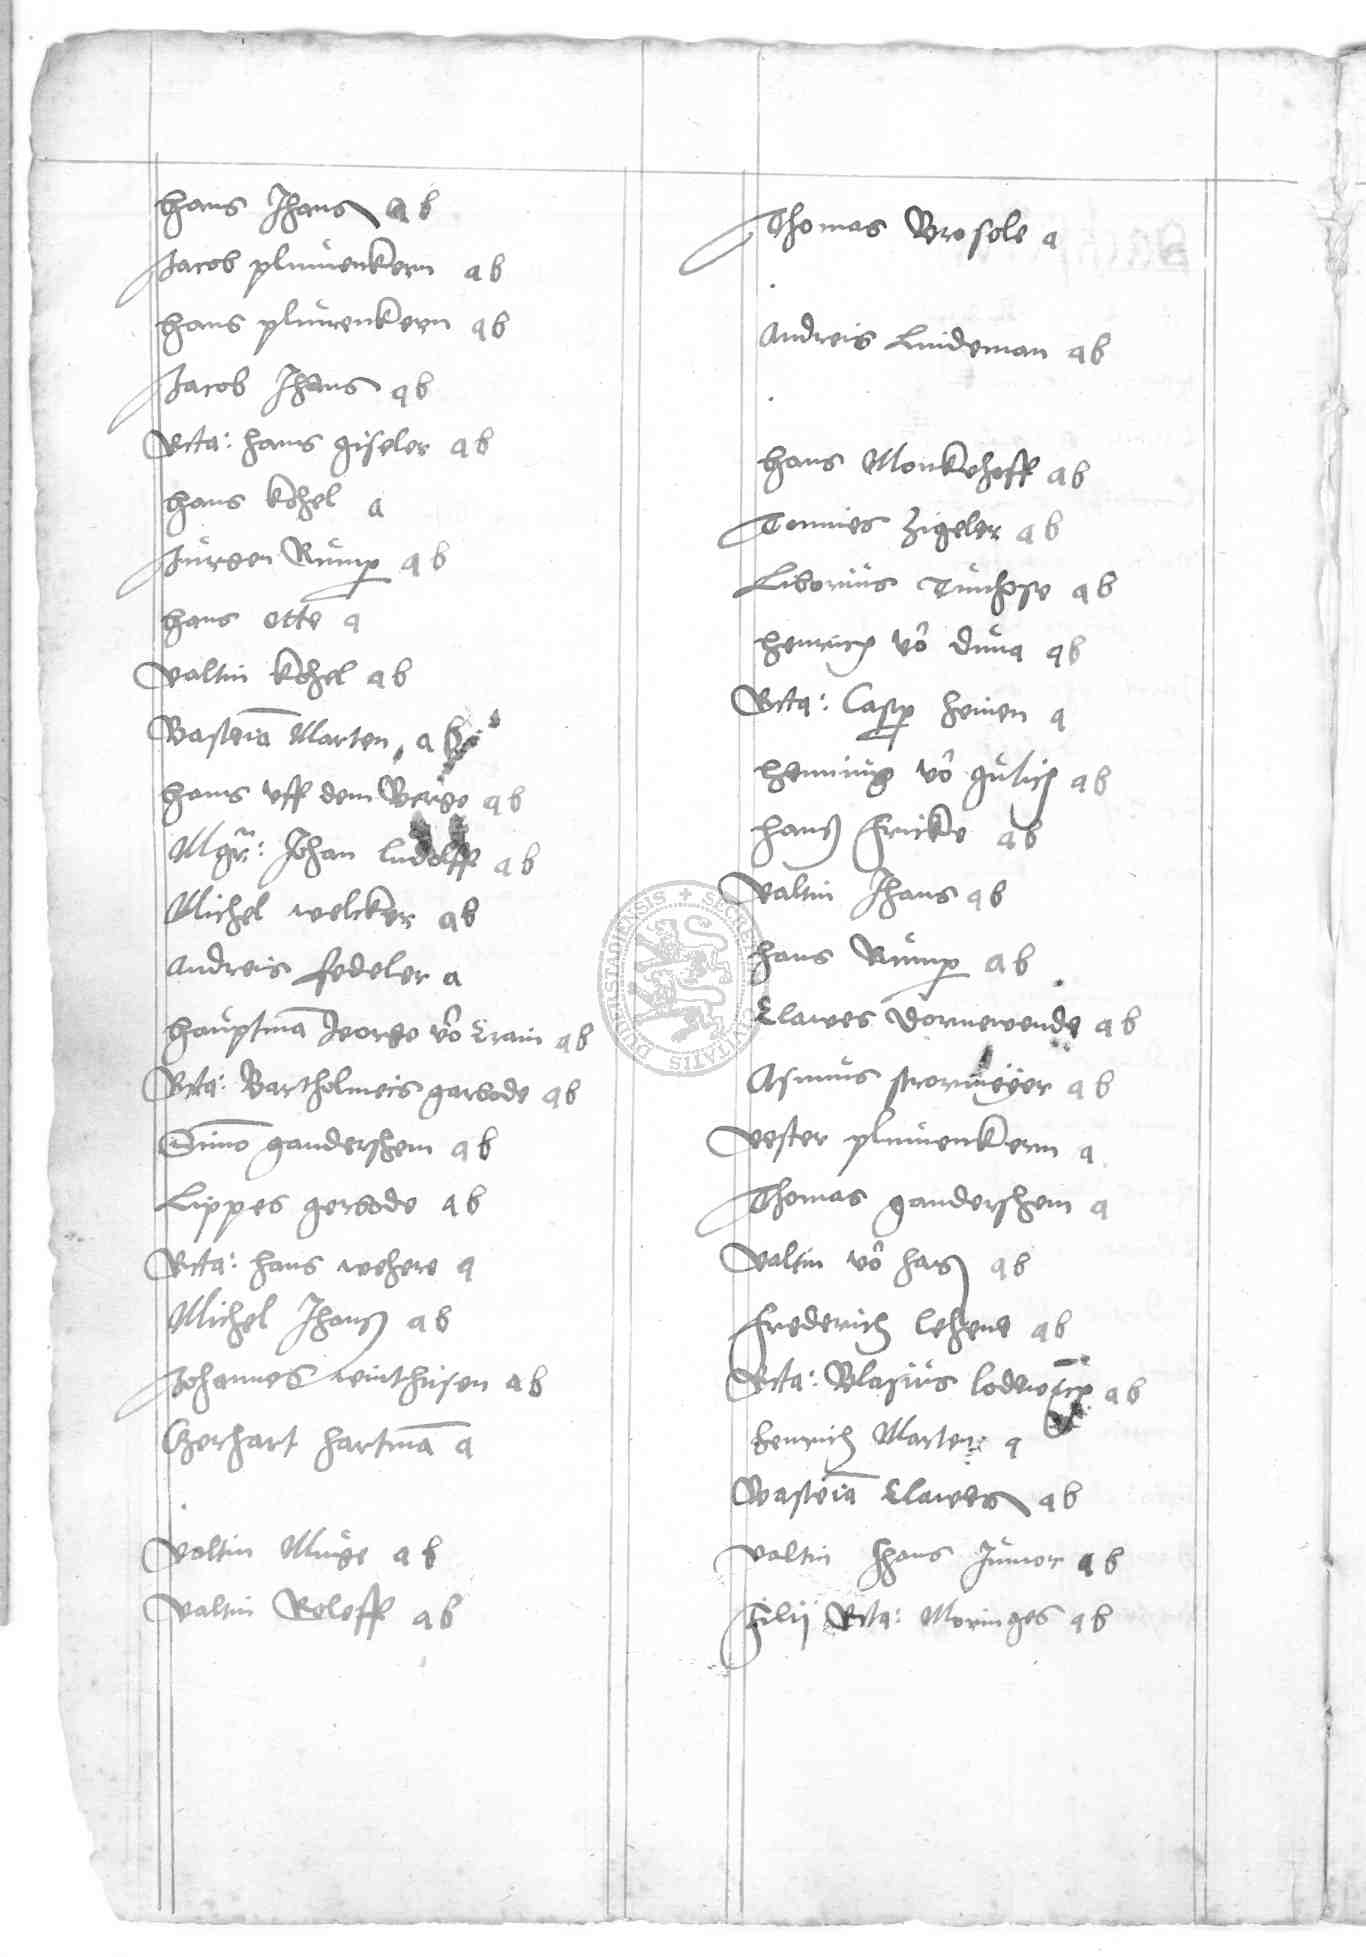 Hans Jhans a b
Jacob plumenkern a b
Hans plumenkern a b
Jacob Jhans a b
Rcta: Hans giseler a b
Hans kohel a
Jurgen Rump a b
Hans otte a
Valtin kohel a b
Basteiā Marten a b
Hans uff dem Berge a b
Mgr̄: Johan Ludolff a b
Michel welcker a b
Andreis fedeler a
Hauptmā Jeorge vō Crain a b
Rcta: Bartholmeis garbode a b
Simō gandershem a b
Lippes gerbode a b
Rcta: Hans wehere a
Michel Jhans a b
Johannes wintthusen a b
Gerhart Hartmā a
Valtin Muge a b
Valtin Roleff a b
Thomas Brosole a
Andreis Lindeman a b
Hans Monkehoff a b
Tonnies Zigeler a b
Liborius a b
Henrich vō Duna a b
Rcta: Casp Heinen a
Henning vō gulich a b
Hans Fricke a b
Valtin Jhans a b
Hans Rump a b
Clawes Dornewende a b
Asmus stormeÿer a b
Vester plumenkern a
Thomas gandershem a
Valtin vō Hars a b
Frederich Lehene a b
Rcta: Blasius a b
Henrich Marten a
Basteiā Clawes a b
Valtin Jhans Junior a b
Filij Rcta: Moringes a b
SECRET CIVITATIS DUDERSTADIENSIS